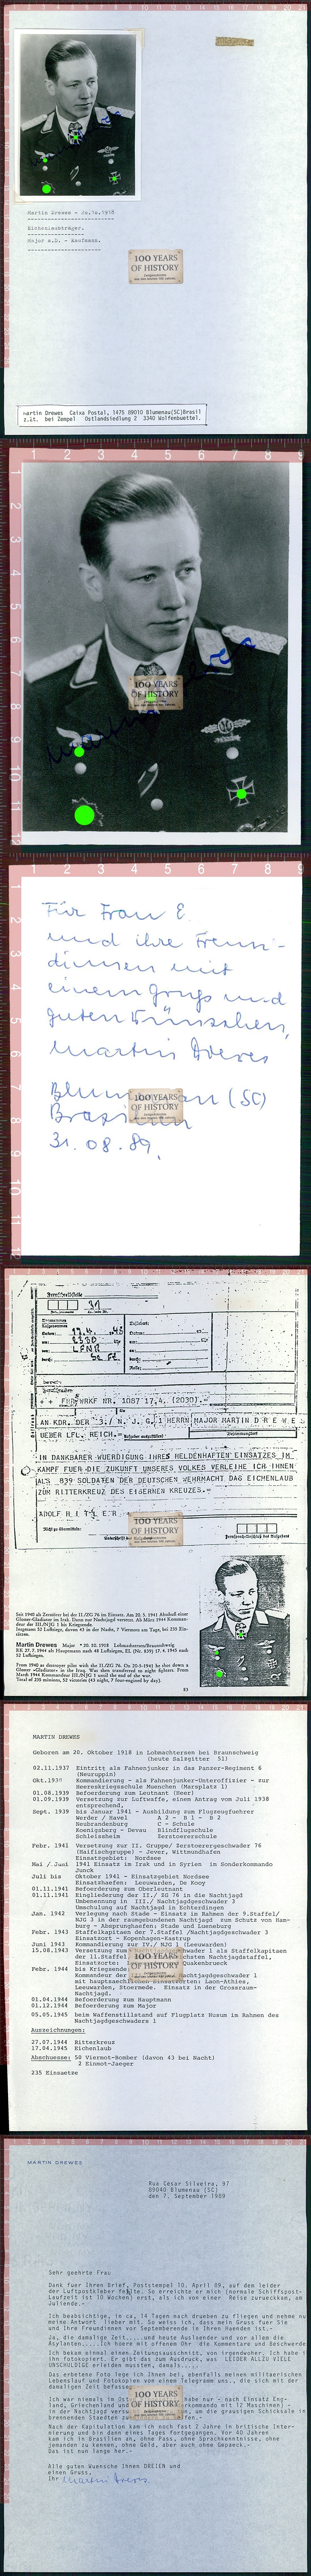 Martin Drewes - 20.10.1918
Eichenlaubträger.
Major a.D. - Kaufmann.
100 YEARS
OF HISTORY
Martin Drewes Caixa Postal, 1475 89010 Blumenau(SC)Brasil
z.Zt. bei Zempel Ostlandsiedlung 2 3340 Wolfenbuettel.
Martin Drewes
100 YEARS
OF HISTORY
Für Frau E.
und ihre Freun-
dinnen mit
einem Gruß und
guten Wünschen,
Martin Drewes
Blumenau (SC)
31.08.89.
100 YEARS
OF HISTORY
Fernschreibstelle
+ + FRR WRKF NR. 1087 17.4. (2030).=
AN KDR. DER 3./ N. J. G. 1 HERRN MAJOR MARTIN D R E W E S
UEBER LFL. REICH.=
IN DANKBARER WUERDIGUNG IHRES HELDENHAFTEN EINSATZES IM
KAMPF FUER DIE ZUKUNFT UNSERES VOLKES VERLEIHE ICH IHNEN
ALS 839 SOLDATEN DER DEUTSCHEN WEHRMACHT DAS EICHENLAUB
ZUM RITTERKREUZ DES EISERNEN KREUZES.=
ADOLF H I T L E R
100 YEARS
OF HISTORY
Seit 1940 als Zerstörer bei der II./ZG 76 im Einsatz. Am 20. 5. 1941 Abschuß einer
Gloster-Gladiator im Irak. Dann zur Nachtjagd versetzt. Ab März 1944 Komman-
deur der III./NJG 1 bis Kriegsende.
Insgesamt 52 Luftsiege, davon 43 in der Nacht, 7 Viermots am Tage, bei 235 Ein-
sätzen.
Martin Drewes Major *20. 10. 1918 Lobmachtersen/Braunschweig
RK 27. 7. 1944 als Hauptmann nach 48 Luftsiegen, EL (Nr. 839) 17. 4. 1945 nach
52 Luftsiegen.
From 1940 as destroyer pilot with the II./ZG 76. On 20-5-1941 he shot down a
Gloster »Gladiator« in the Iraq. Was then transferred to night fighters. From
March 1944 Kommandeur III./NJG 1 until the end of the war.
Total of 235 missions, 52 victories (43 night, 7 four-engined by day).
83
MARTIN DREWES
Geboren am 20. Oktober 1918 in Lobmachtersen bei Braunschweig
(heute Salzgitter 51)
02.11.1937 Eintritt als Fahnenjunker in das Panzer-Regiment 6
(Neuruppin)
Kommandierung - als Fahnenjunker-Unteroffizier - zur
Heereskriegsschule Muenchen (Marsplatz 1)
01.08.1939 Befoerderung zum Leutnant (Heer)
01.09.1939 Versetzung zur Luftwaffe, einem Antrag vom Juli 1938
entsprechend.
Sept. 1939 bis Januar 1941 - Ausbildung zum Flugzeugfuehrer
Werder / Havel A 2 - B 1 - B 2
Neubrandenburg C - Schule
Koenigsberg - Devau Blindflugschule
Schleissheim Zerstoererschule
Febr. 1941 Versetzung zur II. Gruppe/ Zerstoerergeschwader 76
(Haifischgruppe) - Jever, Wittmundhafen
Einsatzgebiet: Nordsee
Mai / Juni 1941 Einsatz im Irak und in Syrien im Sonderkommando
Junck
Juli bis Oktober 1941 - Einsatzgebiet Nordsee
Einsatzhafen: Leeuwarden, De Kooy
01.11.1941 Befoerderung zum Oberleutnant
01.11.1941 Eingliederung der II./ ZG 76 in die Nachtjagd
Umbenennung in III./ Nachtjagdgeschwader 3
Umschulung auf Nachtjagd in Echterdingen
Jan. 1942 Verlegung nach Stade - Einsatz im Rahmen der 9.Staffel/
NJG 3 in der raumgebundenen Nachtjagd zum Schutz von Ham-
burg - Absprunghafen: Stade und Lueneburg
Febr. 1943 Staffelkapitaen der 7.Staffel /Nachtjagdgeschwader 3
Einsatzort - Kopenhagen-Kastrup
Juni 1943 Kommandierung zur IV./ NJG 1 (Leeuwarden)
15.08.1943 Versetzung zum
der 11.Staffel
Febr. 1944 bis Kriegsende
Kommandeur der
Leeuwarden, Stoermede. Einsatz in der Grossraum-
Nachtjagd.
01.04.1944 Befoerderung zum Hauptmann
01.12.1944 Befoerderung zum Major
05.05.1945 beim Waffenstillstand auf Flugplatz Husum im Rahmen des
Nachtjagdgeschwaders 1
Auszeichnungen:
27.07.1944 Ritterkreuz
17.04.1945 Eichenlaub
Abschuesse: 50 Viermot-Bomber (davon 43 bei Nacht)
2 Einmot-Jaeger
235 Einsaetze
100 YEARS
OF HISTORY
MARTIN DREWES
Rua Cesar Silveira, 97
89040 Blumenau (SC)
den 7. September 1989
Sehr geehrte Frau
Dank fuer Ihren Brief, Poststempel 10. April 89, auf dem leider
der Luftpostkleber fehlte. So erreichte er mich (normale Schiffspost-
Laufzeit ist 10 Wochen) erst, als ich von einer Reise zurueckkam, am
Juliende.-
Ich beabsichtige, in ca. 14 Tagen nach drueben zu fliegen und nehme nun
meine Antwort lieber mit. So weiss ich, dass mein Gruss fuer Sie
und Ihre Freundinnen vor Septemberende in Ihren Haenden ist.-
Ja, die damalige Zeit....und heute Auslaender und vor allem die
Asylanten.....Ich hoere mit offenem Ohr die Kommentare und Beschwerde
Ich bekam einmal einen Zeitungsausschnitt, von irgendwoher. Ich habe i
ihn fotokopiert. Er gibt das zum Ausdruck, was LEIDER ALLZU VIELE
UNSCHULDIGE erleiden mussten, damals.....
Das erbetene Foto lege ich Ihnen bei, ebenfalls meinen militaerischen
Lebenslauf und Fotokopien von einem Telegramm usw., die sich mit der
damaligen Zeit befassen.
Ich war niemals im Ost
habe nur - nach Einsatz Eng-
land, Griechenland und
in der Nachtjagd versu
n, um die grausigen Schicksale in
brennenden Staedten zu
fen.-
Nach der Kapitulation kam ich noch fast 2 Jahre in britische Inter-
nierung und bin dann eines Tages fortgegangen. Vor 40 Jahren
kam ich in Brasilien an, ohne Pass, ohne Sprachkenntnisse, ohne
jemanden zu kennen, ohne Geld, aber auch ohne Gepaeck.-
Das ist nun lange her.-
Alle guten Wuensche Ihnen DREIEN und
einen Gruss,
Ihr Martin Drewes.
100 YEARS
OF HISTORY